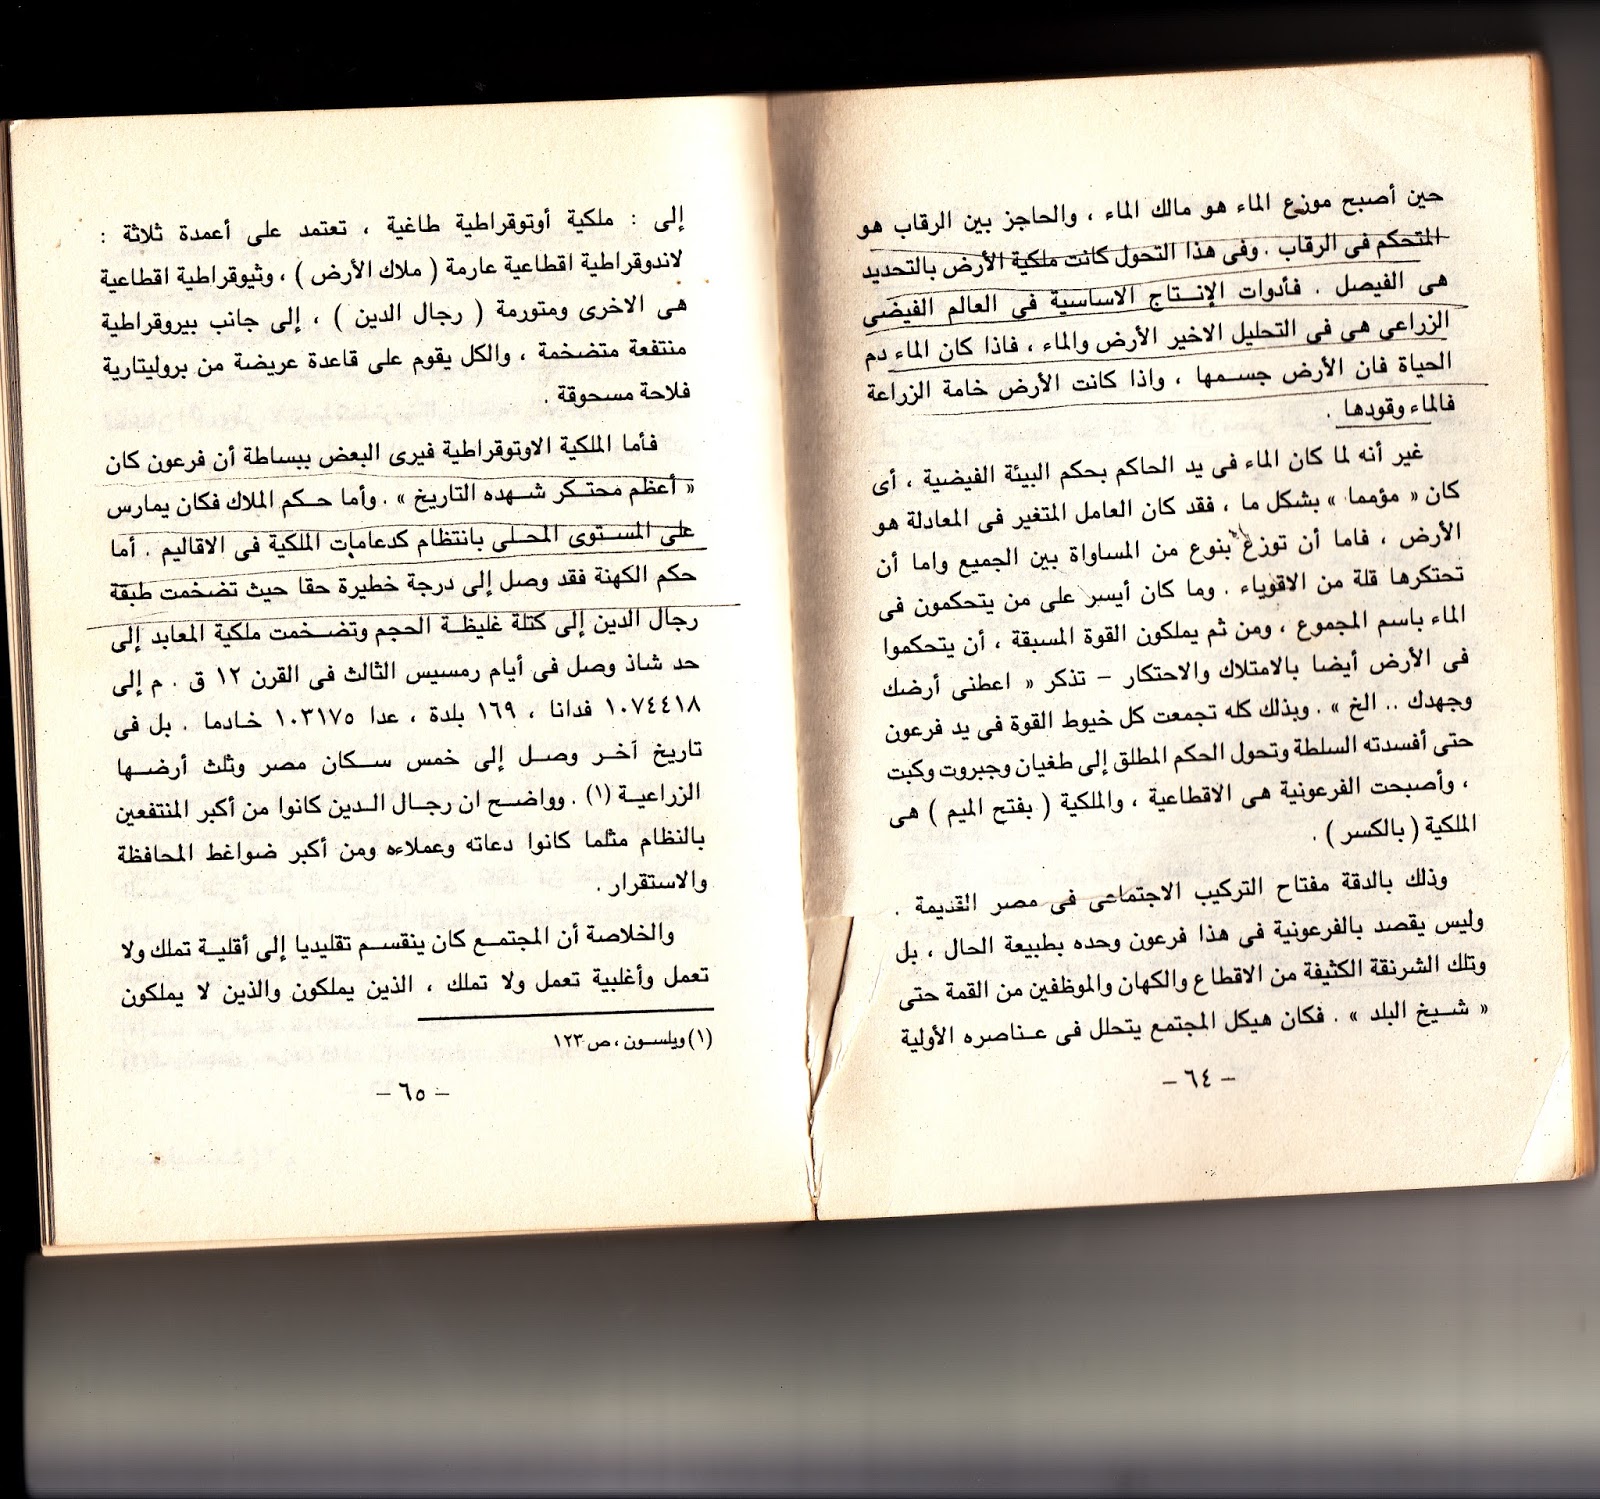 حين أصبح موزع الماء هو مالك الماء ، والحاجز بين الرقاب هو
المتحكم فى الرقاب . وفى هذا التحول كانت ملكية الأرض بالتحديد
هى الفيصل . فأدوات الإنتاج الاساسية فى العالم الفيضى
الزراعى هى فى التحليل الاخير الأرض والماء ، فاذا كان الماء دم
الحياة فان الأرض جسمها ، واذا كانت الأرض خامة الزراعة
فالماء وقودها .
غير أنه لما كان الماء فى يد الحاكم بحكم البيئة الفيضية ، أى
كان « مؤمما » بشكل ما ، فقد كان العامل المتغير فى المعادلة هو
الأرض ، فاما أن توزع بنوع من المساواة بين الجميع واما أن
تحتكرها قلة من الاقوياء . وما كان أيسر على من يتحكمون فى
الماء باسم المجموع ، ومن ثم يملكون القوة المسبقة ، أن يتحكموا
فى الأرض أيضا بالامتلاك والاحتكار – تذكر « اعطنى أرضك
وجهدك .. الخ » . وبذلك كله تجمعت كل خيوط القوة فى يد فرعون
حتى أفسدته السلطة وتحول الحكم المطلق إلى طغيان وجبروت وكبت
، وأصبحت الفرعونية هى الاقطاعية ، والملكية ( بفتح الميم ) هى
الملكية ( بالكسر ) .
وذلك بالدقة مفتاح التركيب الاجتماعى فى مصر القديمة .
وليس يقصد بالفرعونية فى هذا فرعون وحده بطبيعة الحال ، بل
وتلك الشرنقة الكثيفة من الاقطاع والكهان والموظفين من القمة حتى
« شيخ البلد » . فكان هيكل المجتمع يتحلل فى عناصره الأولية
– ٦٤ –
إلى : ملكية أوتوقراطية طاغية ، تعتمد على أعمدة ثلاثة :
لاندوقراطية اقطاعية عارمة ( ملاك الأرض ) ، وثيوقراطية اقطاعية
هى الاخرى ومتورمة ( رجال الدين ) ، إلى جانب بيروقراطية
منتفعة متضخمة ، والكل يقوم على قاعدة عريضة من بروليتارية
فلاحة مسحوقة .
فأما الملكية الاوتوقراطية فيرى البعض ببساطة أن فرعون كان
« أعظم محتكر شهده التاريخ » . وأما حكم الملاك فكان يمارس
على المستوى المحلى بانتظام كدعامات الملكية فى الاقاليم . أما
حكم الكهنة فقد وصل إلى درجة خطيرة حقا حيث تضخمت طبقة
رجال الدين إلى كتلة غليظة الحجم وتضخمت ملكية المعابد إلى
حد شاذ وصل فى أيام رمسيس الثالث فى القرن ١٢ ق . م إلى
١٠٧٤٤١٨ فدانا ، ١٦٩ بلدة ، عدا ١٠٣١٧٥ خادما . بل فى
تاريخ آخر وصل إلى خمس سكان مصر وثلث أرضها
الزراعية (١) . وواضح ان رجال الدين كانوا من أكبر المنتفعين
بالنظام مثلما كانوا دعاته وعملاءه ومن أكبر ضواغط المحافظة
والاستقرار .
والخلاصة أن المجتمع كان ينقسم تقليديا إلى أقلية تملك ولا
تعمل وأغلبية تعمل ولا تملك ، الذين يملكون والذين لا يملكون
(١) ويلسون ، ص ١٢٣
– ٦٥ –